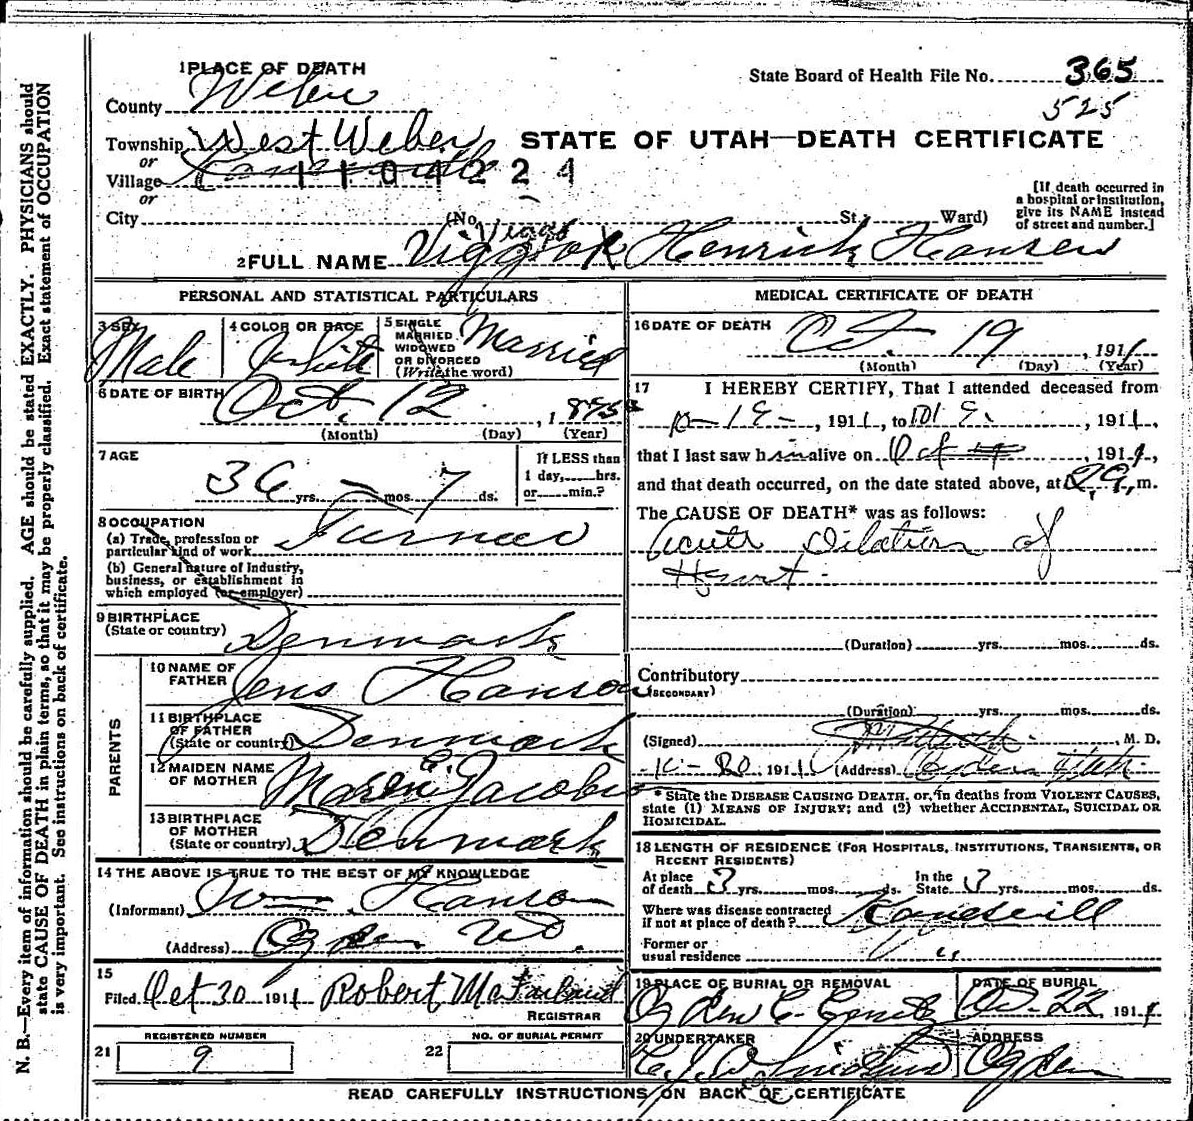 1 PLACE OF DEATH
State Board of Health File No. 365
525
County Weber
Township West Weber
or
Village Kanesville
1104224
or
City (No. St., Ward)
STATE OF UTAH—DEATH CERTIFICATE
[If death occurred in
a hospital or institution,
give its NAME instead
of street and number.]
2 FULL NAME Viggo Henrick Hansen
PERSONAL AND STATISTICAL PARTICULARS
3 SEX Male
4 COLOR OR RACE White
5 SINGLE
MARRIED
WIDOWED
OR DIVORCED
(Write the word) Married
6 DATE OF BIRTH Oct. 12, 1875
(Month) (Day) (Year)
7 AGE
36 yrs. — mos. 7 ds.
If LESS than
1 day, hrs.
or min.?
8 OCCUPATION
(a) Trade, profession or
particular kind of work Farmer
(b) General nature of industry,
business, or establishment in
which employed (or employer)
9 BIRTHPLACE
(State or country) Denmark
PARENTS
10 NAME OF
FATHER Jens Hanson
11 BIRTHPLACE
OF FATHER
(State or country) Denmark
12 MAIDEN NAME
OF MOTHER Maren Jacobs
13 BIRTHPLACE
OF MOTHER
(State or country) Denmark
14 THE ABOVE IS TRUE TO THE BEST OF MY KNOWLEDGE
(Informant) Wm Hanson
(Address) Ogden
15
Filed Oct 20 1911 Robert McFarland
REGISTRAR
REGISTERED NUMBER
21 9
NO. OF BURIAL PERMIT
22
MEDICAL CERTIFICATE OF DEATH
16 DATE OF DEATH
Oct. 19, 1911
(Month) (Day) (Year)
17 I HEREBY CERTIFY, That I attended deceased from
10-19-, 1911, to 10 19, 1911,
that I last saw him alive on Oct, 1911,
and that death occurred, on the date stated above, at m.
The CAUSE OF DEATH* was as follows:
Acute Dilation of
Heart.
(Duration) yrs. mos. ds.
Contributory
(SECONDARY)
(Duration) yrs. mos. ds.
(Signed) , M. D.
10-20, 1911 (Address) Ogden Utah
* State the DISEASE CAUSING DEATH, or, in deaths from VIOLENT CAUSES,
state (1) MEANS OF INJURY; and (2) whether ACCIDENTAL, SUICIDAL OR
HOMICIDAL.
18 LENGTH OF RESIDENCE (FOR HOSPITALS, INSTITUTIONS, TRANSIENTS, OR
RECENT RESIDENTS)
At place
of death 3 yrs. mos. ds.
In the
State 3 yrs. mos. ds.
Where was disease contracted
if not at place of death? Kanesvill
Former or
usual residence " "
19 PLACE OF BURIAL OR REMOVAL
Ogden C.
DATE OF BURIAL
Oct. 22 1911
20 UNDERTAKER
ADDRESS
Ogden
READ CAREFULLY INSTRUCTIONS ON BACK OF CERTIFICATE
N. B.—Every item of information should be carefully supplied. AGE should be stated EXACTLY. PHYSICIANS should
state CAUSE OF DEATH in plain terms, so that it may be properly classified. Exact statement of OCCUPATION
is very important. See instructions on back of certificate.